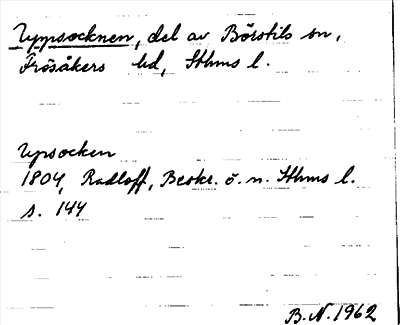 Uppsocknen, del av Börstils sn,
Frösåkers hd, Sthms l.
Upsocken
1804, Radloff, Beskr. ö. n. Sthms l.
s. 144
B.N. 1962